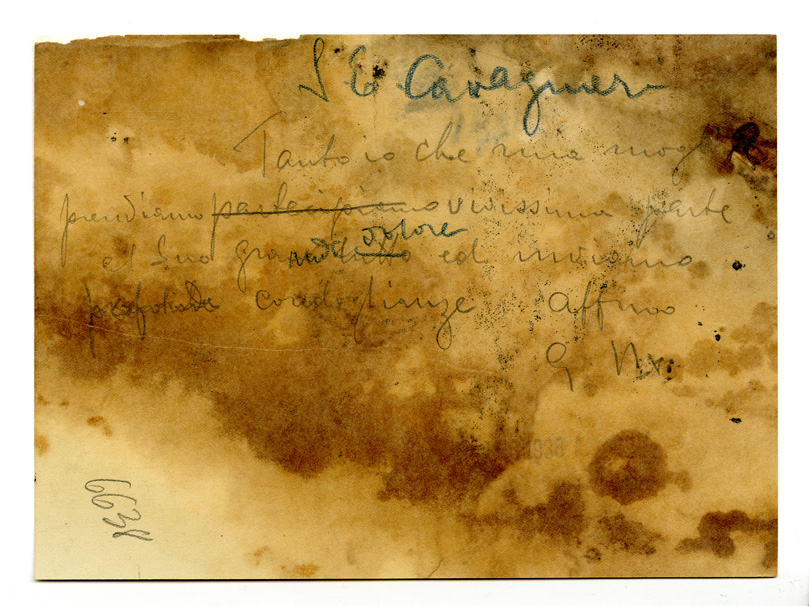 S E Cavagnari
Tanto io che mia mogl
prendiamo partecipiamo vivissima parte
al Suo gran dolore ed inviamo
profonde condoglianze affmo
G
6638